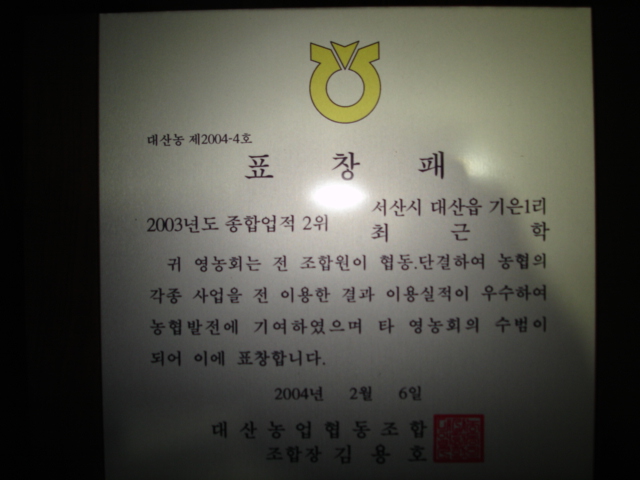 대산농 제2004-4호
표 창 패
2003년도 종합업적 2위
서산시 대산읍 기은1리
최 근 학
귀 영농회는 전 조합원이 협동.단결하여 농협의
각종 사업을 전 이용한 결과 이용실적이 우수하여
농협발전에 기여하였으며 타 영농회의 수범이
되어 이에 표창합니다.
2004년 2월 6일
대 산 농 업 협 동 조 합
조합장 김 용 호